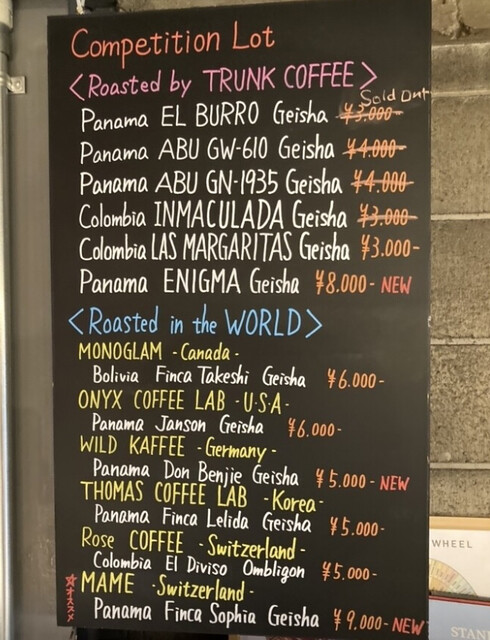 Competition Lot
<Roasted by TRUNK COFFEE>
Sold Out
Panama EL BURRO Geisha ¥3.000-
Panama ABU GW-610 Geisha ¥4.000-
Panama ABU GN-1935 Geisha ¥4.000-
Colombia INMACULADA Geisha ¥3.000-
Colombia LAS MARGARITAS Geisha ¥3.000-
Panama ENIGMA Geisha ¥8.000- NEW
<Roasted in the WORLD>
MONOGLAM -Canada-
Bolivia Finca Takeshi Geisha ¥6.000-
ONYX COFFEE LAB -U・S・A-
Panama Janson Geisha ¥6.000-
WILD KAFFEE -Germany-
Panama Don Benjie Geisha ¥5.000- NEW
THOMAS COFFEE LAB -Korea-
Panama Finca Lelida Geisha ¥5.000-
Rose COFFEE -Switzerland-
Colombia El Diviso Ombligon ¥5.000-
MAME -Switzerland-
Panama Finca Sophia Geisha ¥9.000- NEW
オススメ
WHEEL
STAN